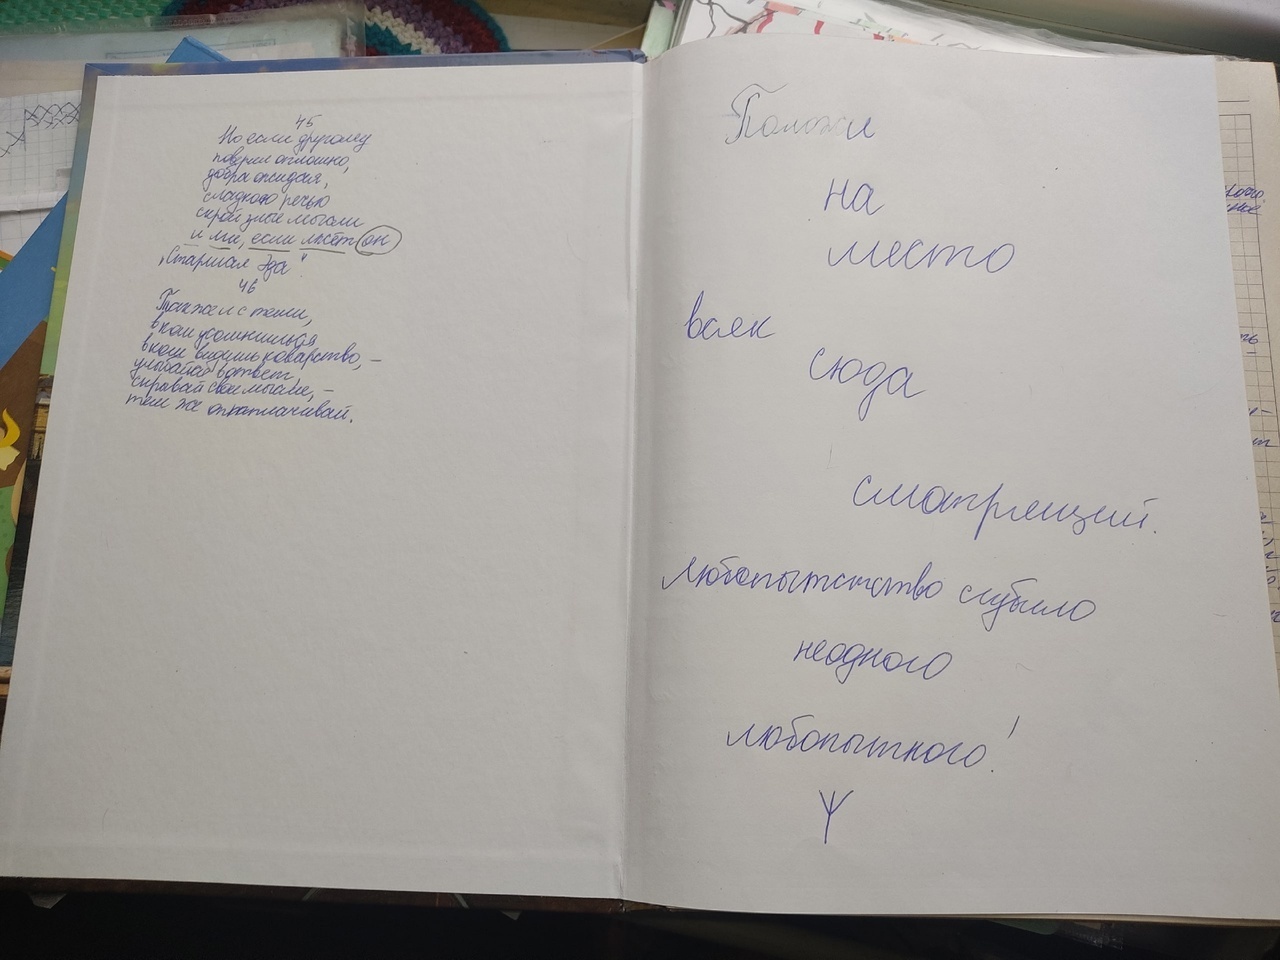 45
Но если другому
поверил оплошно,
добра ожидая,
сладкою речью
скрой злые мысли
и лги, если лжёт он
„Старшая Эда"
46
Также и с теми,
в ком усомнишься
в ком видишь коварство, –
улыбайся в ответ,
скрывай свои мысли, –
тем же отплачивай.
Положи
на
место
всяк
сюда
смотрящий.
Любопытство сгубило
неодного
любопытного!